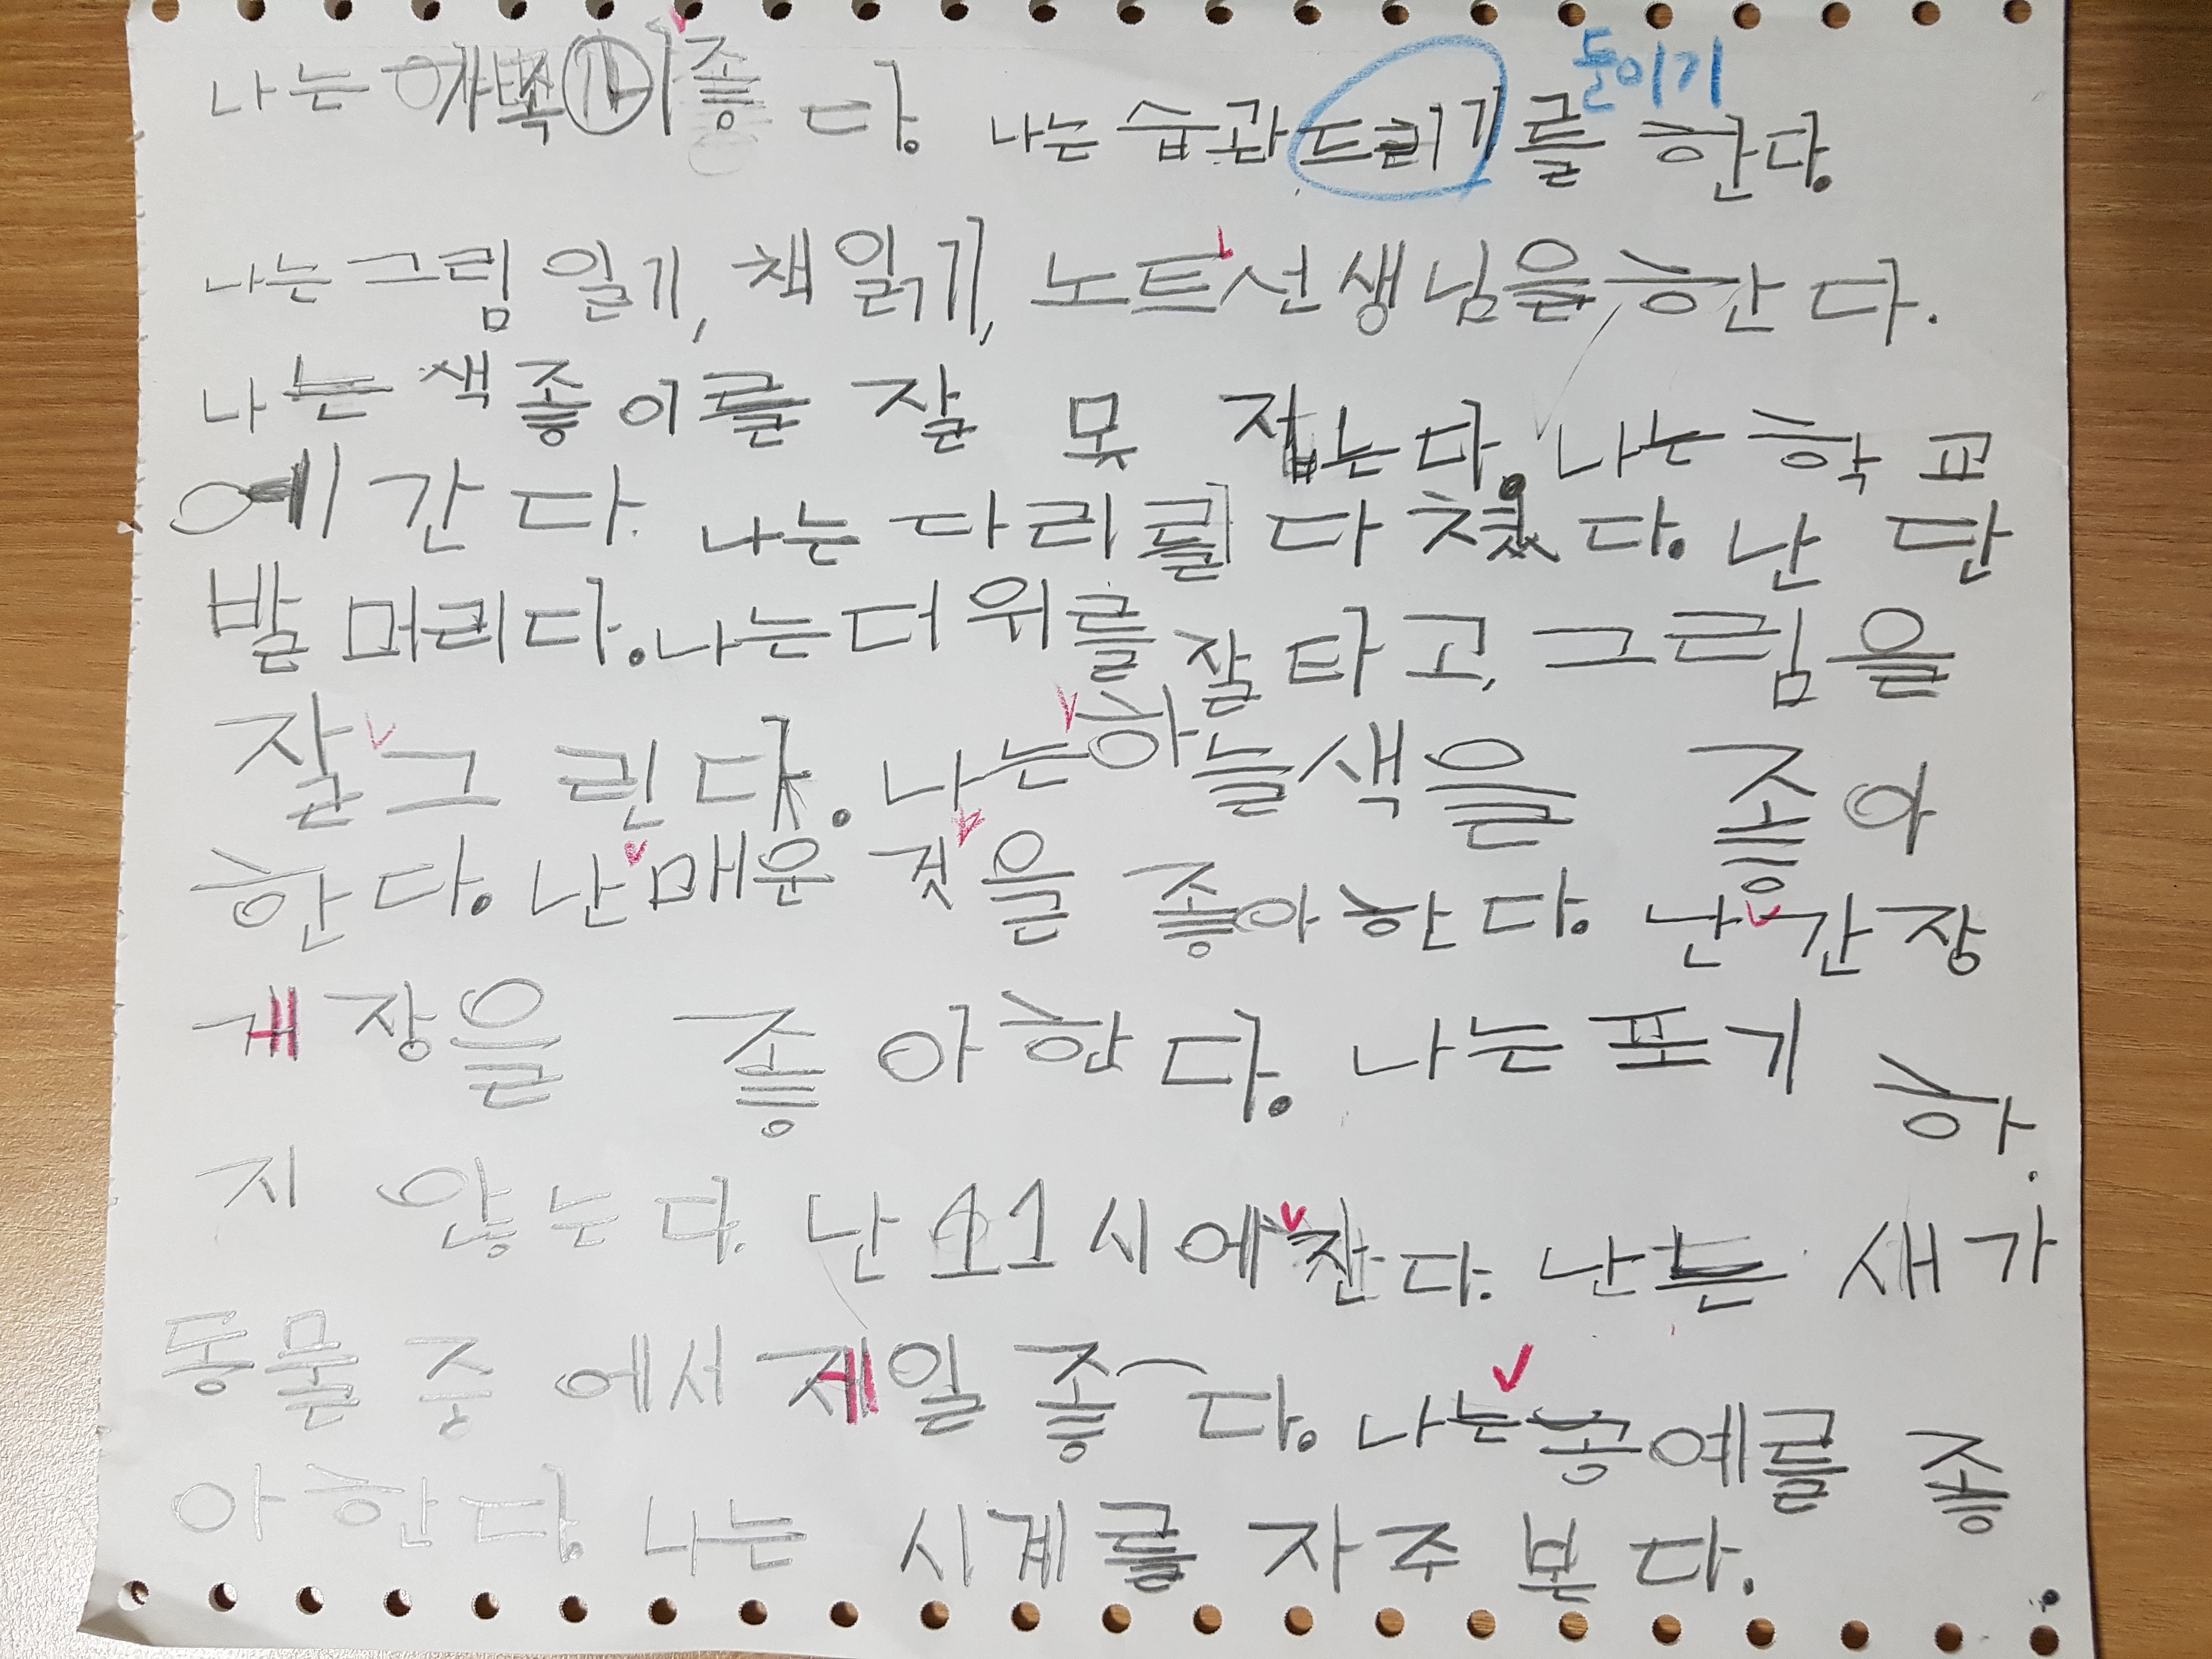 나는 가족이 좋다. 나는 습관드리기를 한다.
들이기
나는 그림 일기, 책읽기, 노트선생님을 한다.
나는 색좋이를 잘 못 접는다. 나는 학교
에 간다. 나는 다리를 다쳤다. 난 단
발머리다. 나는 더위를 잘 타고, 그림을
잘그린다. 나는하늘색을 좋아
한다. 난매운 것을 좋아한다. 난간장
게장을 좋아한다. 나는 포기 하
지 않는다. 난 11시에 잔다. 난 는 새가
동물 중에서 제일 좋다. 나는 공예를 좋
아한다. 나는 시계를 자주 본다.